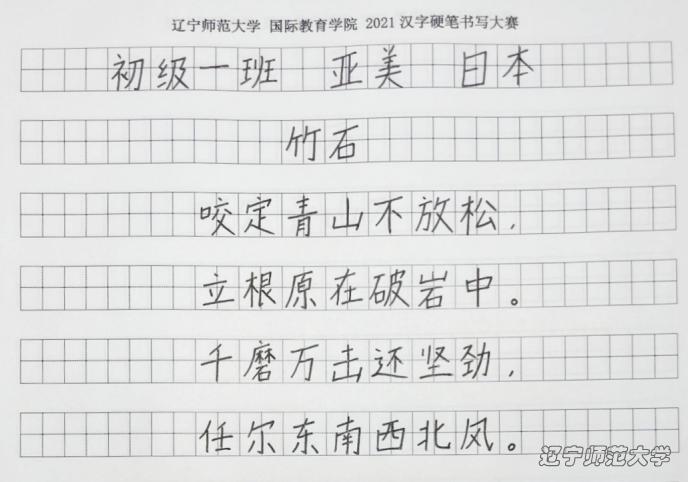 辽宁师范大学 国际教育学院 2021 汉字硬笔书写大赛
初级一班 亚美 日本
竹石
咬定青山不放松,
立根原在破岩中。
千磨万击还坚劲,
任尔东南西北风。
辽宁师范大学